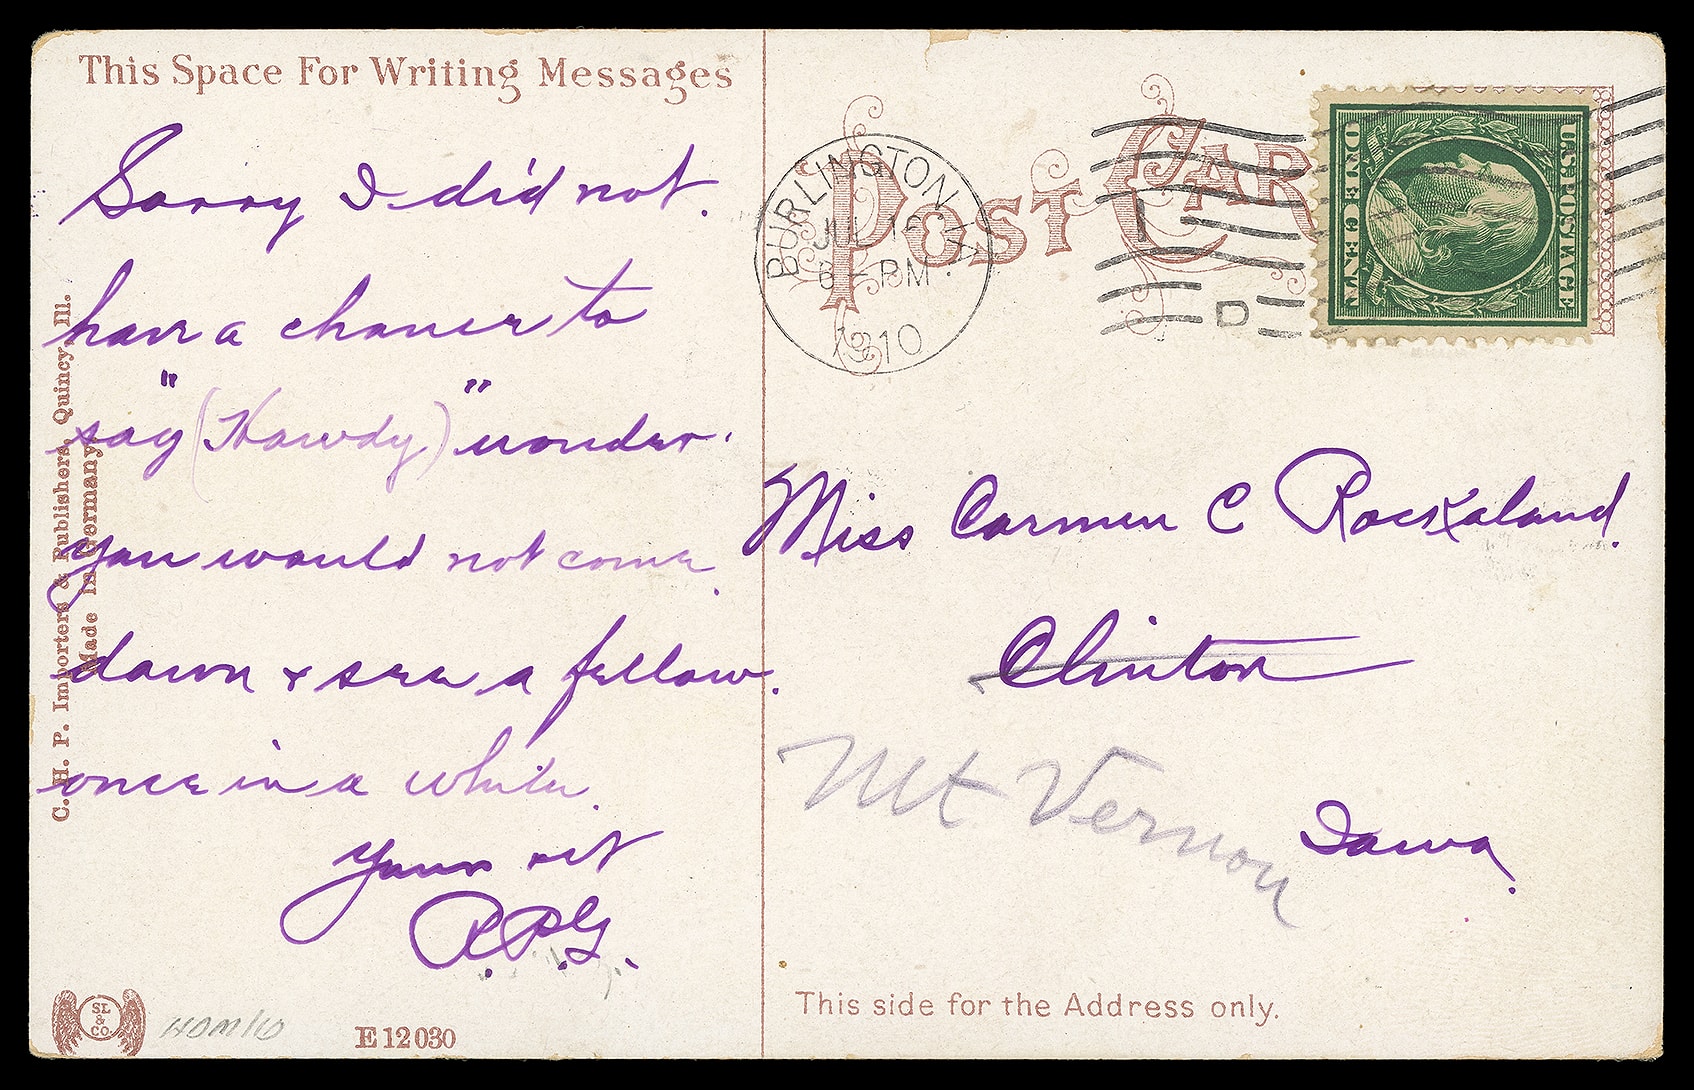 This Space For Writing Messages
Sorry I did not.
have a chance to
say "(Howdy)" wonder.
you would not come.
down & see a fellow.
once in a while.
Yours
R.P.G.
C. H. P. Importers & Publishers, Quincy, Ill.
Made in Germany.
SL
&
CO.
E 12030
POST CAR
BURLINGTON, IA
JUL
6 - PM
1910
D
U.S. POSTAGE
ONE CENT
Miss Carmen C
Clinton
Mt Vernon
Iowa.
This side for the Address only.